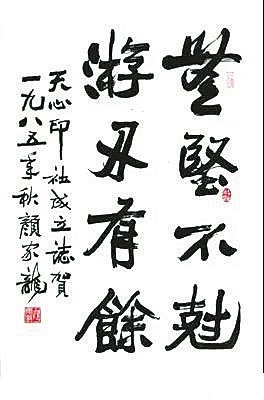 無堅不尅
游刃有餘
天心印社成立誌賀
一九八五年秋顏家龍